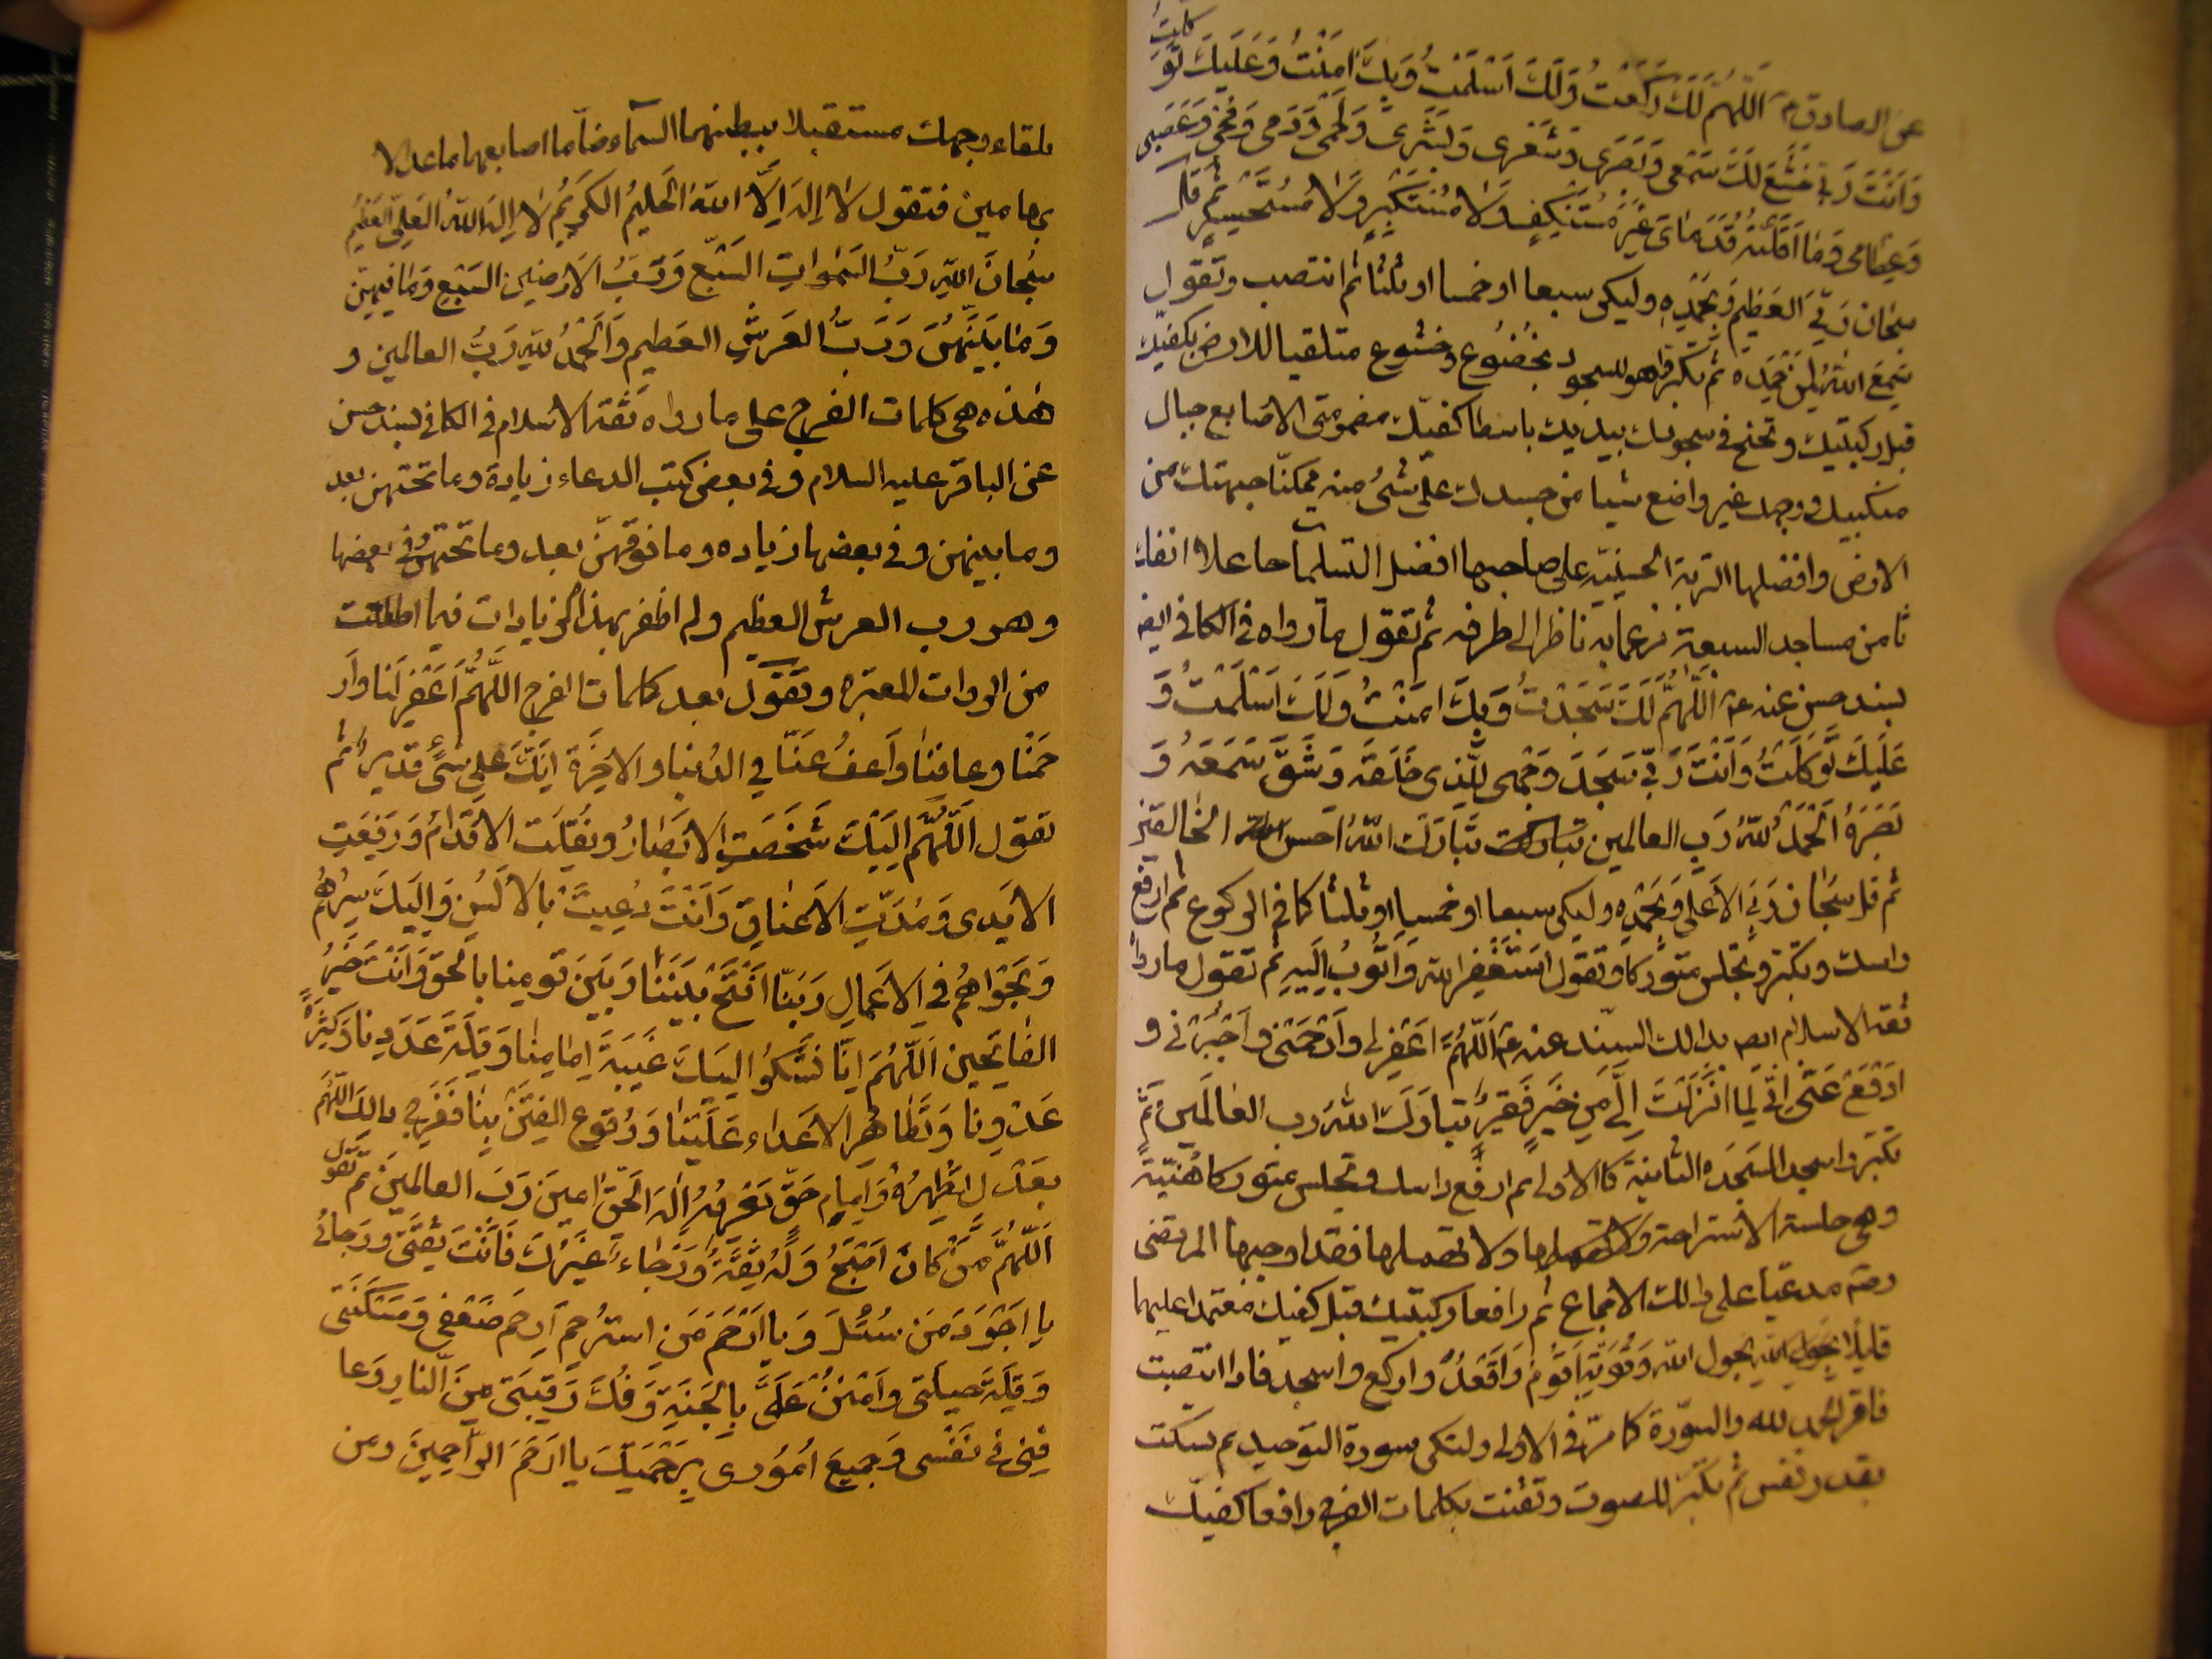 عن الصادق ع اَللّهُمَّ لَكَ رَكَعْتُ وَلَكَ اَسْلَمْتُ وَبِكَ اٰمَنْتُ وَعَلَيْكَ تَوَكَّلْتُ
وَاَنْتَ رَبّي خَشَعَ لَكَ سَمْعى وَبَصَرى وَشَعْرى وَبَشَرى وَلَحْمى وَدَمى وَمُخّى وَعَصَبى
وَعِظامى وَمٰا اَقَلَّتْهُ قَدَمٰاىَ غَيْرَ مُسْتَنْكِفٍ وَلاٰ مُسْتَكْبِرٍ وَلاٰ مُسْتَحْسِرٍ ثم قل
سُبْحٰانَ رَبِّيَ الْعَظيمِ وَبِحَمْدِهِ وليكن سبعا او خمسا او ثلثا ثم انتصب وتقول
سَمِعَ اللهُ لِمَنْ حَمِدَهُ ثم تكبر واهو للسجود بخضوع وخشوع متلقيا للارض بكفيك
قبل ركبتيك وتجنح في سجودك بيديك باسطا كفيك مضمومتى الاصابع حيال
منكبيك ووجهك غير واضع شيئا من جسدك على شئ منه ممكنا جبهتك من
الارض وافضلها التربة الحسينية على صاحبها افضل التسليمات جاعلا انفك
ثامن مساجد السبعة ترغما به ناظرا الى طرفه ثم تقول ما رواه في الكافي ايضا
بسند حسن عنه ع اَللّهُمَّ لَكَ سَجَدْتُ وَبِكَ اٰمَنْتُ وَلَكَ اَسْلَمْتُ وَ
عَلَيْكَ تَوَكَّلْتُ وَاَنْتَ رَبّي سَجَدَ وَجْهى لِلَّذى خَلَقَهُ وَشَقَّ سَمْعَهُ وَ
بَصَرَهُ اَلْحَمْدُ لِلّهِ رَبِّ العالمين تَبٰارَكَ اللهُ اَحْسَنُ الخالقين
ثم قل سُبْحٰانَ رَبِّيَ الاَعْلىٰ وَبِحَمْدِهِ وليكن سبعا او خمسا او ثلثا كما في الركوع ثم ارفع
راسك وتكبر وتجلس متوركا وتقول اَسْتَغْفِرُ الله وَاَتُوبُ اِلَيْهِ ثم تقول ما رواه
ثقة الاسلام ايضا بذالك السند عنه ع اَللّهُمَّ اغْفِرْ لى وَارْحَمْنى وَاَجْبُرْنى و
ادْفَعْ عَنّى اِنّى لِمٰا اَنْزَلْتَ اِلَىَّ مِنْ خَيْرٍ فَقيرٌ تَبٰارَكَ اللهُ رب العالَمينَ ثم
تكبر واسجد السَجْدَة الثانية كالاولى ثم ارفع راسك وتجلس متوركا هُنيئة
وهى جلسة الاستراحة ولا تهملها فقد اوجبها المرتضى
رضه مدعيا على ذالك الاجماع ثم رافعا ركبتيك قبل كفيك معتمدا عليهما
قايلا بحول الله وَقُوَّتِهِ اَقُومُ وَاَقْعُدُ واركع واسجد فاذا انتصبت
فاقرا الحمد لله والسورة كما مر في الاولى ولتكن سورة التوحيد ثم تسكت
بقدر نفس ثم تكبر للقنوت وتقنت بكلمات الفرج رافعا كفيك
تلقاء وجهك مستقبلا ببطنهما السماء ضاما اصابعهما ما عدا الا
بهامين فتقول لاٰ اِلهَ اِلاَّ اللهُ الْحَليمُ الكَريمُ لاٰ اِلهَ اِلاَّ اللهُ العَلِىُّ العَظيمُ
سُبْحانَ اللهِ رَبِّ السَّمٰواتِ السَّبْعِ وَرَبِّ الاَرَضينَ السَّبْعِ وَمٰا فيهِنَّ
وَمٰا بَيْنَهُنَّ وَرَبِّ الْعَرْشِ العَظيمِ وَالْحَمْدُ لِلّهِ رَبِّ العالمين و
هٰذه هى كلمات الفرج على ما رواه ثقة الاسلام في الكافي بسند حسن
عن الباقر عليه السلام وفي بعض كتب الدعاء زيادة وما تحتهن بعد
وما بينهن وفي بعضها زياده وما فوقهن بعد وما تحتهن وفي بعضها
وهو رب العرش العظيم ولم اظفر بهذه الزيادات فيما اطلعت
من الروايات المعتبره وتقول بعد كلمات الفرج اَللّهُمَّ اغْفِرْ لَنا وَارْ
حَمْنا وعافِنٰا وَاعْفُ عَنّا فِي الدُنيا والاخِرَةِ اِنَّكَ عَلى شَئٍ قَديرٌ ثم
تقول اَللّهُمَّ اِلَيْكَ شَخَصَتِ الاَبْصٰارُ ونُقِلَتِ الاَقْدٰامُ وَرُفِعَتِ
الاَيْدى وَمُدَّتِ الاَعْنٰاقُ وَاَنْتَ دُعيتَ بالاَلْسُنِ وَاِلَيْكَ سِرُّهُمْ
وَنَجْواهُمْ فِي الاَعْمالِ رَبَّنَا افْتَحْ بَيْنَنٰا وَبَيْنَ قومِنا بالْحَقِّ وَاَنْتَ خَيْرُ
الفٰاتِحينَ اَللّهُمَّ اِنّا نَشْكُوا اِلَيْكَ غَيْبَةَ اِمامِنٰا وَقِلَّةَ عَدَدِنا وَكَثْرَةَ
عَدُوِّنا وَتَظٰاهُرَ الاَعْداءِ عَلَيْنٰا وَوُقُوعَ الفِتَنِ بِنٰا فَفَرِّجْ ذالِكَ اللّهُمَّ
بِعَدْلٍ تُظْهِرُهُ وَاِمٰامِ حَقٍّ تَعْرِفُهُ اِلٰهَ الْحَقِّ اٰمينَ رَبَّ العالَمينَ ثم تقول
اَللّهُمَّ مَنْ كانَ اَصْبَحَ وَلَهُ ثِقَةٌ وَرَجٰاءٌ غَيْرُكَ فَاَنْتَ ثِقَتى وَرَجائى
يا اَجْوَدَ مَنْ سُئِلَ وَيٰا اَرْحَمَ مَنِ استُرْحِمَ اِرحَمْ ضَعْفى وَمَسْكَنَتى
وَقِلَّةَ حيلَتى وَامْنُنْ عَلَىَّ بِالْجَنَّةِ وَفُكَّ رَقَبَتى مِنَ النّارِ وَعا
فِنى فى نَفْسى وَجَميعِ اُمُورى بِرَحْمَتِكَ يا اَرْحَمَ الرّاحِمينَ ومن